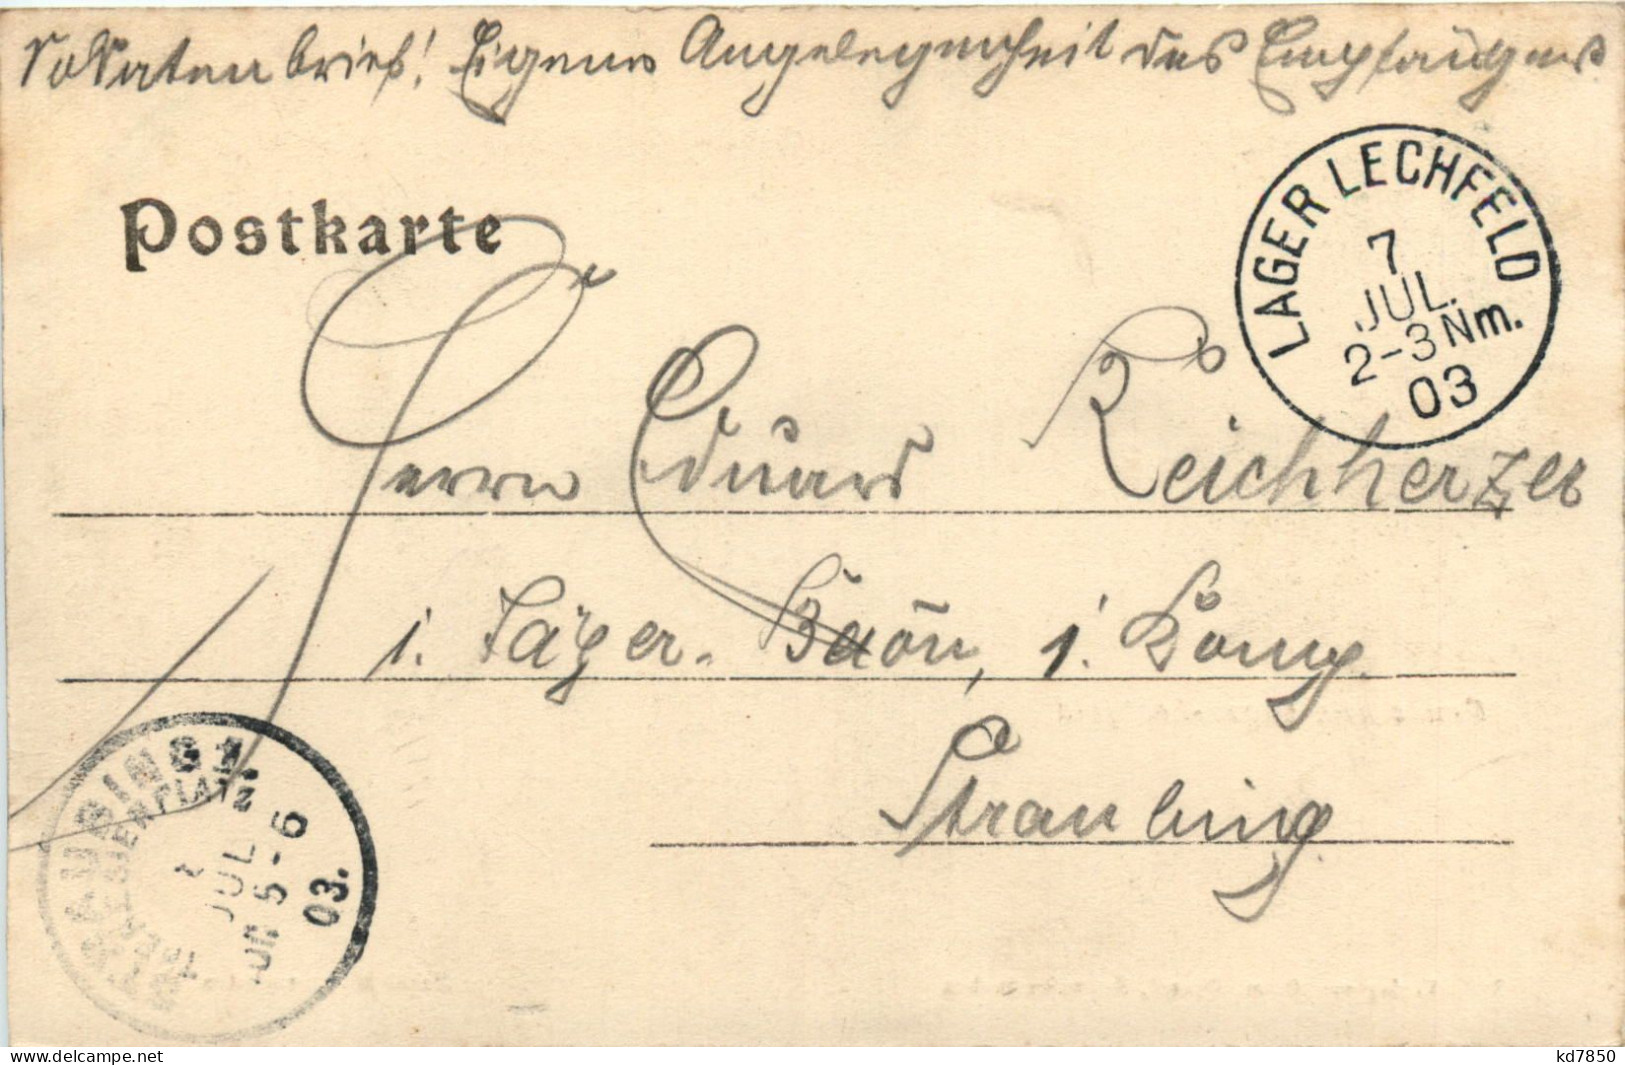 Soldatenbrief! Eigene Angelegenheit des Empfängers
Postkarte
LAGER LECHFELD
7
JUL.
2-3 Nm.
03
Herrn Eduard Reichherzer
i. Jäger. Baōn, 1. Komp.
Straubing
STRAUBING 1.
THERESIENPLATZ
JUL
VM 5-6
03.
delcampe.net
kd7850